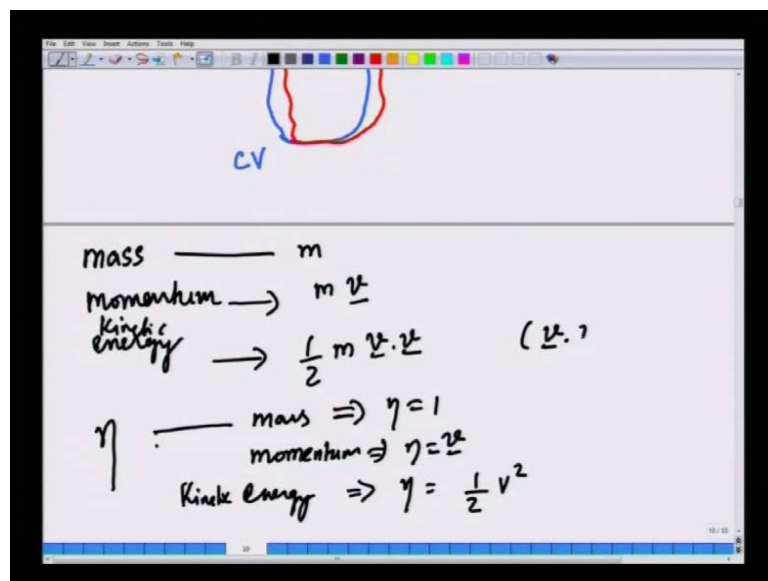 File Edit View Insert Actions Tools Help
CV
mass —— m
momentum → m v
kinetic
energy → 1/2 m v.v (v.
η —— mass ⇒ η = 1
momentum ⇒ η = v
Kinetic energy ⇒ η = 1/2 v²
10